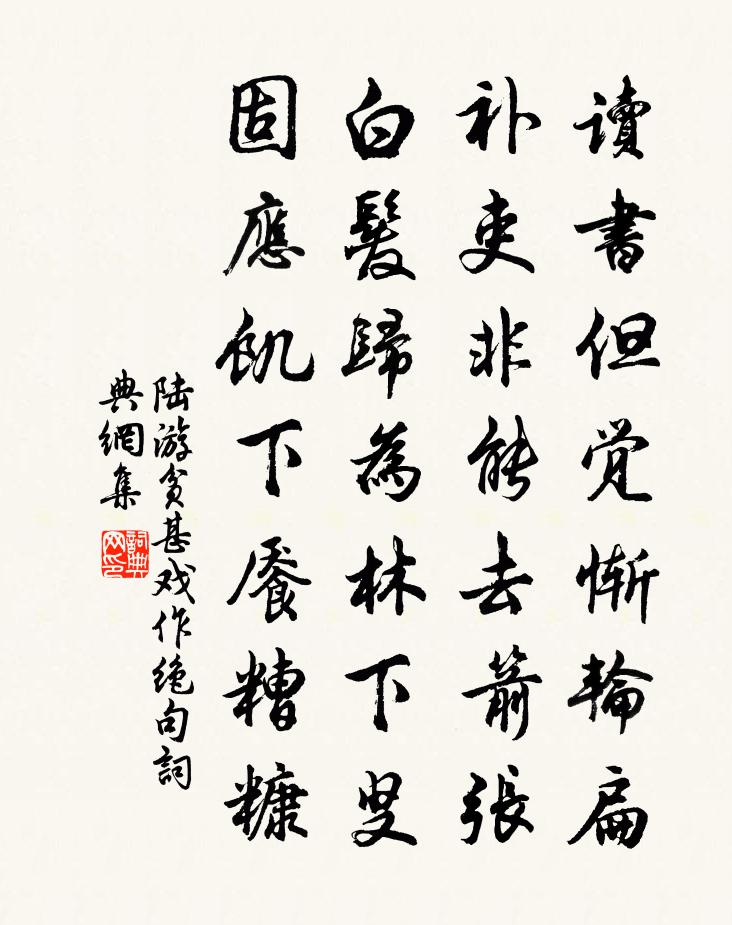 讀書但觉惭輪扁
补吏非能去箭張
白髮歸為林下叟
固應飢下饜糟糠
陆游贫甚戏作绝句詞
典網集
詞典网印